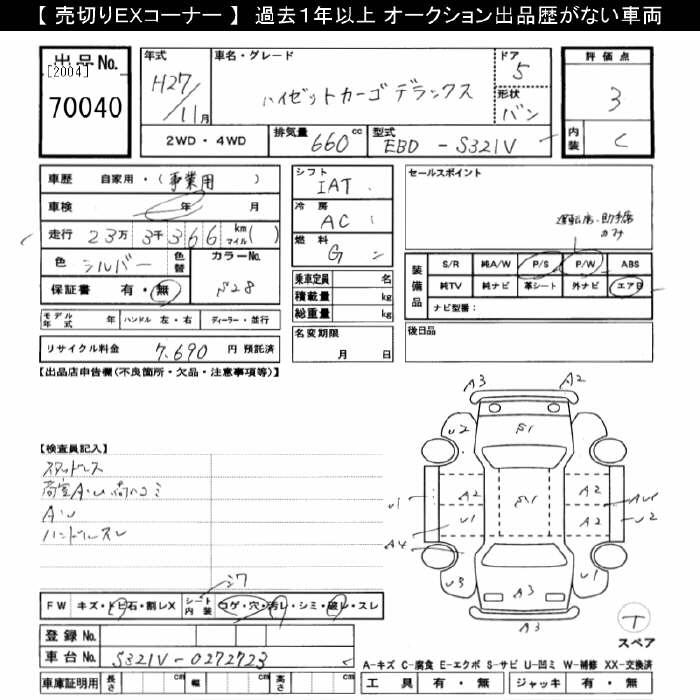 【 売切りEXコーナー 】 過去1年以上 オークション出品歴がない車両
出品No.
[2004]
70040
年式
H27/11月
車名・グレード
ハイゼットカーゴ デラックス
ドア
5
形状
バン
評価点
3
内装
C
2WD・4WD
排気量
660cc
型式
EBD - S321V
車歴 自家用・(事業用)
車検 年 月
走行 23万 3千 366 km マイル( )
色 シルバー 色替
カラーNo.
S28
保証書 有・無
シフト
IAT
冷房
AC
燃料
G
乗車定員 名
積載量 kg
総重量 kg
名変期限
月 日
セールスポイント
運転席・助手席
装備品
S/R 純A/W P/S P/W ABS
純TV 純ナビ 革シート 外ナビ エアB
ナビ型番:
後日品
モデル年式 年 ハンドル 左・右 ディーラー・並行
リサイクル料金 7,690 円 預託済
【出品店申告欄(不良箇所・欠品・注意事項等)】
【検査員記入】
スタッドレス
荷室A・U 荷コミ
A・U
ハンドルスレ
シワ
FW キズ・トビ石・割レX
シート内装 コゲ・穴・汚レ・シミ・破レ・スレ
登録No.
車台No. S321V-0272723
車庫証明用 長さ cm 幅 cm 高さ cm
A3 A2
U2 S1
A2 S1 A2
U1 U1 A2 AU1
U2
A4
U3 A3 A3 U1
A3
T
スペア
A-キズ C-腐食 E-エクボ S-サビ U-凹ミ W-補修 XX-交換済
工具 有・無 ジャッキ 有・無